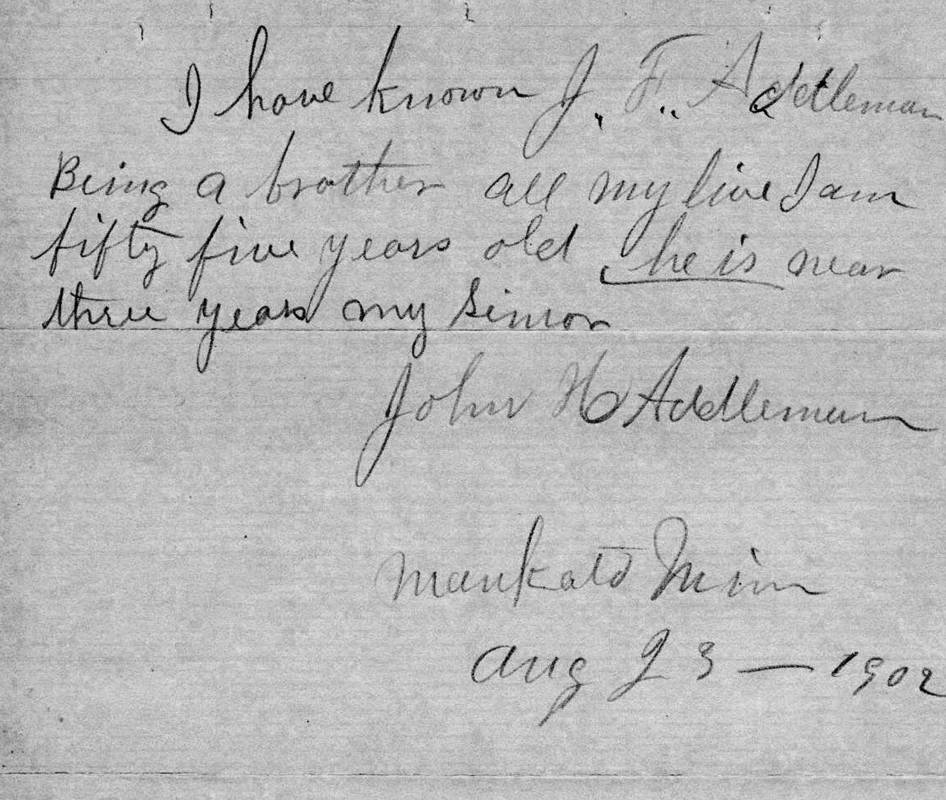 I have known J. F. Addleman
Being a brother all my live I am
fifty five years old he is near
three years my Sinior
John H Addleman
Mankato Minn
Aug 23 — 1902